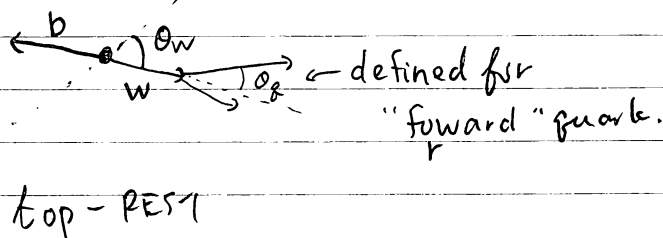 b θw
W θq ← defined for
"foward" quark.
r
top - REST